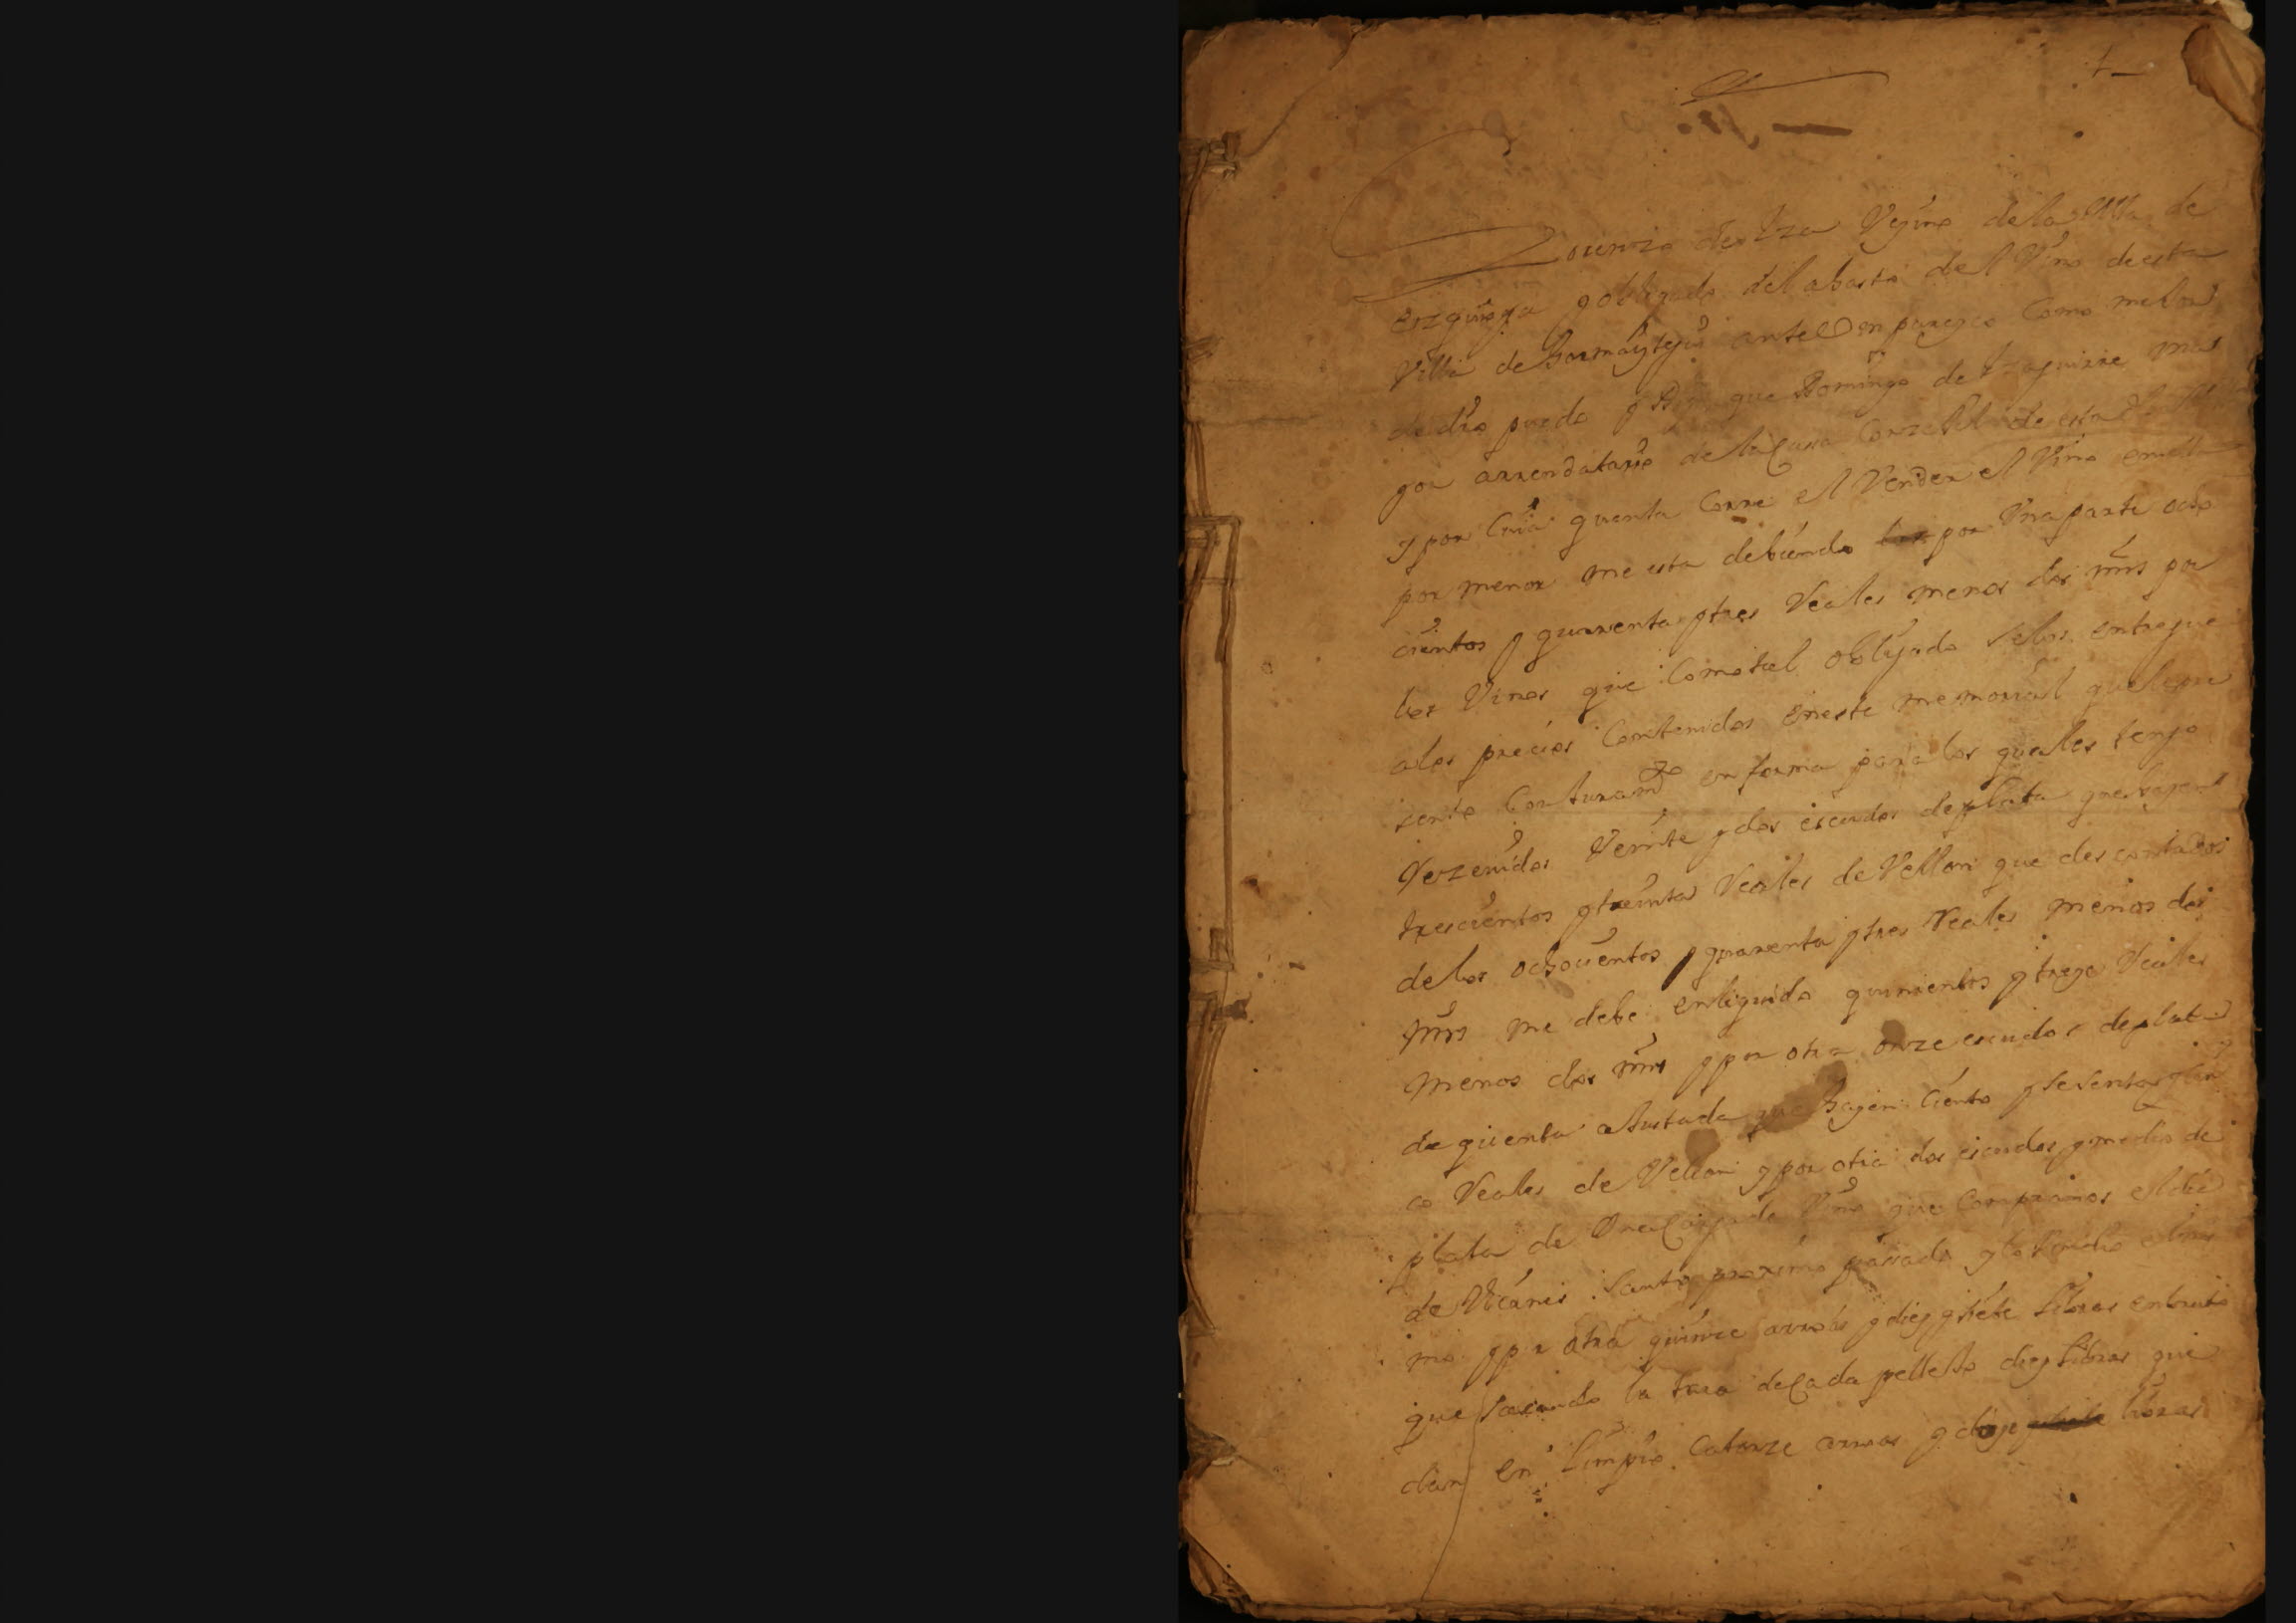 Lorenzo de Yza Vezino de la Villa de
Ezquioga y obligado del abasto del Vino de esta
Villa de Hormayztegui ante Vm parezco Como mejor
de dro puedo y Digo que Domingo de Yzaguirre mas
yor arrendatario de la Cassa Conzejil de esta dha Villa
y por Cuia quenta Corre el Vender el Vino en ella
por menor me esta debiendo por Vna parte ocho
cientos y quarenta y tres Reales menos dos mrs por
los Vinos que Como tal obligado se los entregue
a los precios Contenidos en este memorial que le pre
sento Con Juramto en forma para los quales tengo
Rezeuidos Veinte y dos escudos de plata que hazen
trescientos y treinta Reales de Vellon que descontados
de los ochocientos y quarenta y tres Reales menos dos
mrs me debe en liquido quinientos y treze Reales
menos dos mrs y por otra onze escudos de plata
de quenta aJustada que hazen Ciento y sesenta y cin
co Reales de Vellon y por otra dos escudos y medio de
plata de Vna Carga de Vino que Compramos el dia
de Viernes Santo proximo passado y lo Vendio el mis
mo y por otra quinze arroas y diez y siete libras en bruto
que sacando la tara de Cada pelleJo diez libras que
dan en limpio Catorze arroas y doze libras